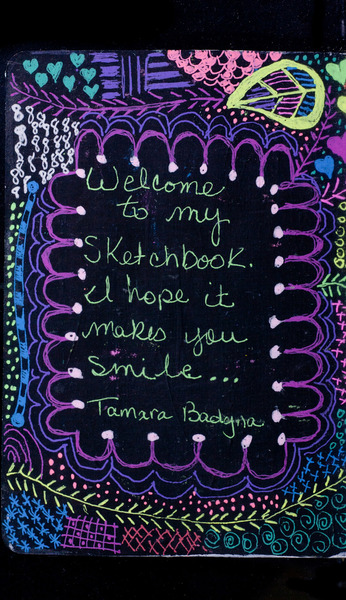 Welcome
to my
Sketchbook.
I hope it
makes you
smile...
Tamara